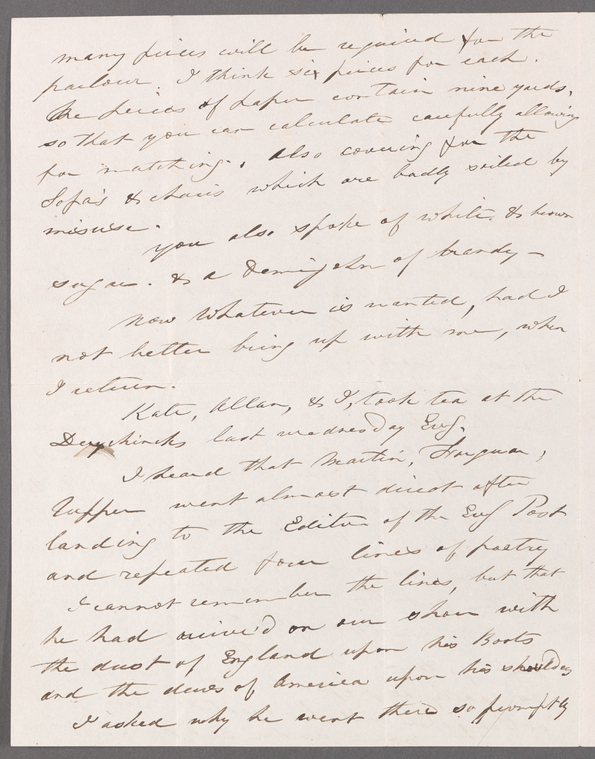 many pieces will be required for the
parlour. I think six pieces for each.
The peices of paper contain nine yards.
so that you can calculate carefully allowing
for matching. also covering for the
Sofa's & chairs which are badly soiled by
misuse.
You also spoke of white & brown
sugar. & a Demijohn of brandy –
Now whatever is wanted, had I
not better bring up with me, when
I return.
Kate, Allan, & I, took tea at the
Duyckincks last wednesday Evg.
I heard that Martin, Farquar,
Tupper went almost direct after
landing to the Editor of the Evg Post
and repeated four lines of poetry
I cannot remember the lines, but that
he had arrive'd on our shore with
the dust of England upon his Boots
and the dews of America upon his shoulders
I asked why he went there so promptly